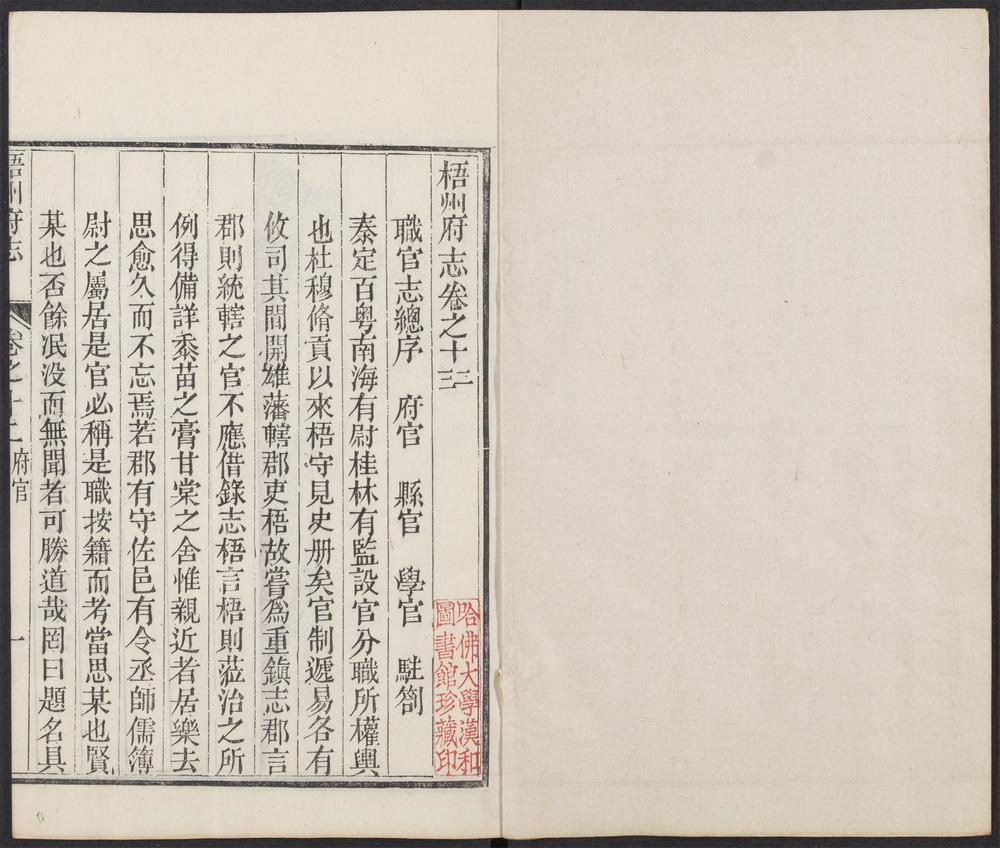 梧州府志卷之十三
職官志總序　府官　縣官　學官　駐劄
秦定百粤南海有尉桂林有監設官分職所權輿
也杜穆脩貢以來梧守見史册矣官制遞易各有
攸司其間開雄藩轄郡吏梧故嘗爲重鎮志郡言
郡則統轄之官不應借錄志梧言梧則蒞治之所
例得備詳黍苗之膏甘棠之舍惟親近者居樂去
思愈久而不忘焉若郡有守佐邑有令丞師儒簿
尉之屬居是官必稱是職按籍而考當思某也賢
某也否餘泯没而無聞者可勝道哉罔曰題名具
梧州府志　卷之十三　府官　一
哈佛大學漢和
圖書館珍藏印